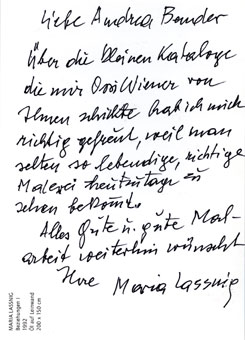 Liebe Andrea Bender
Über die kleinen Kataloge
die mir Ossi Wiener von
Ihnen schickte hab ich mich
richtig gefreut, weil man
selten so lebendige, richtige
Malerei heutzutage zu
sehen bekommt.
Alles Gute u. gute Mal-
arbeit weiterhin wünscht
Ihre Maria Lassnig
MARIA LASSNIG
Beziehungen I
1992
Öl auf Leinwand
200 x 150 cm